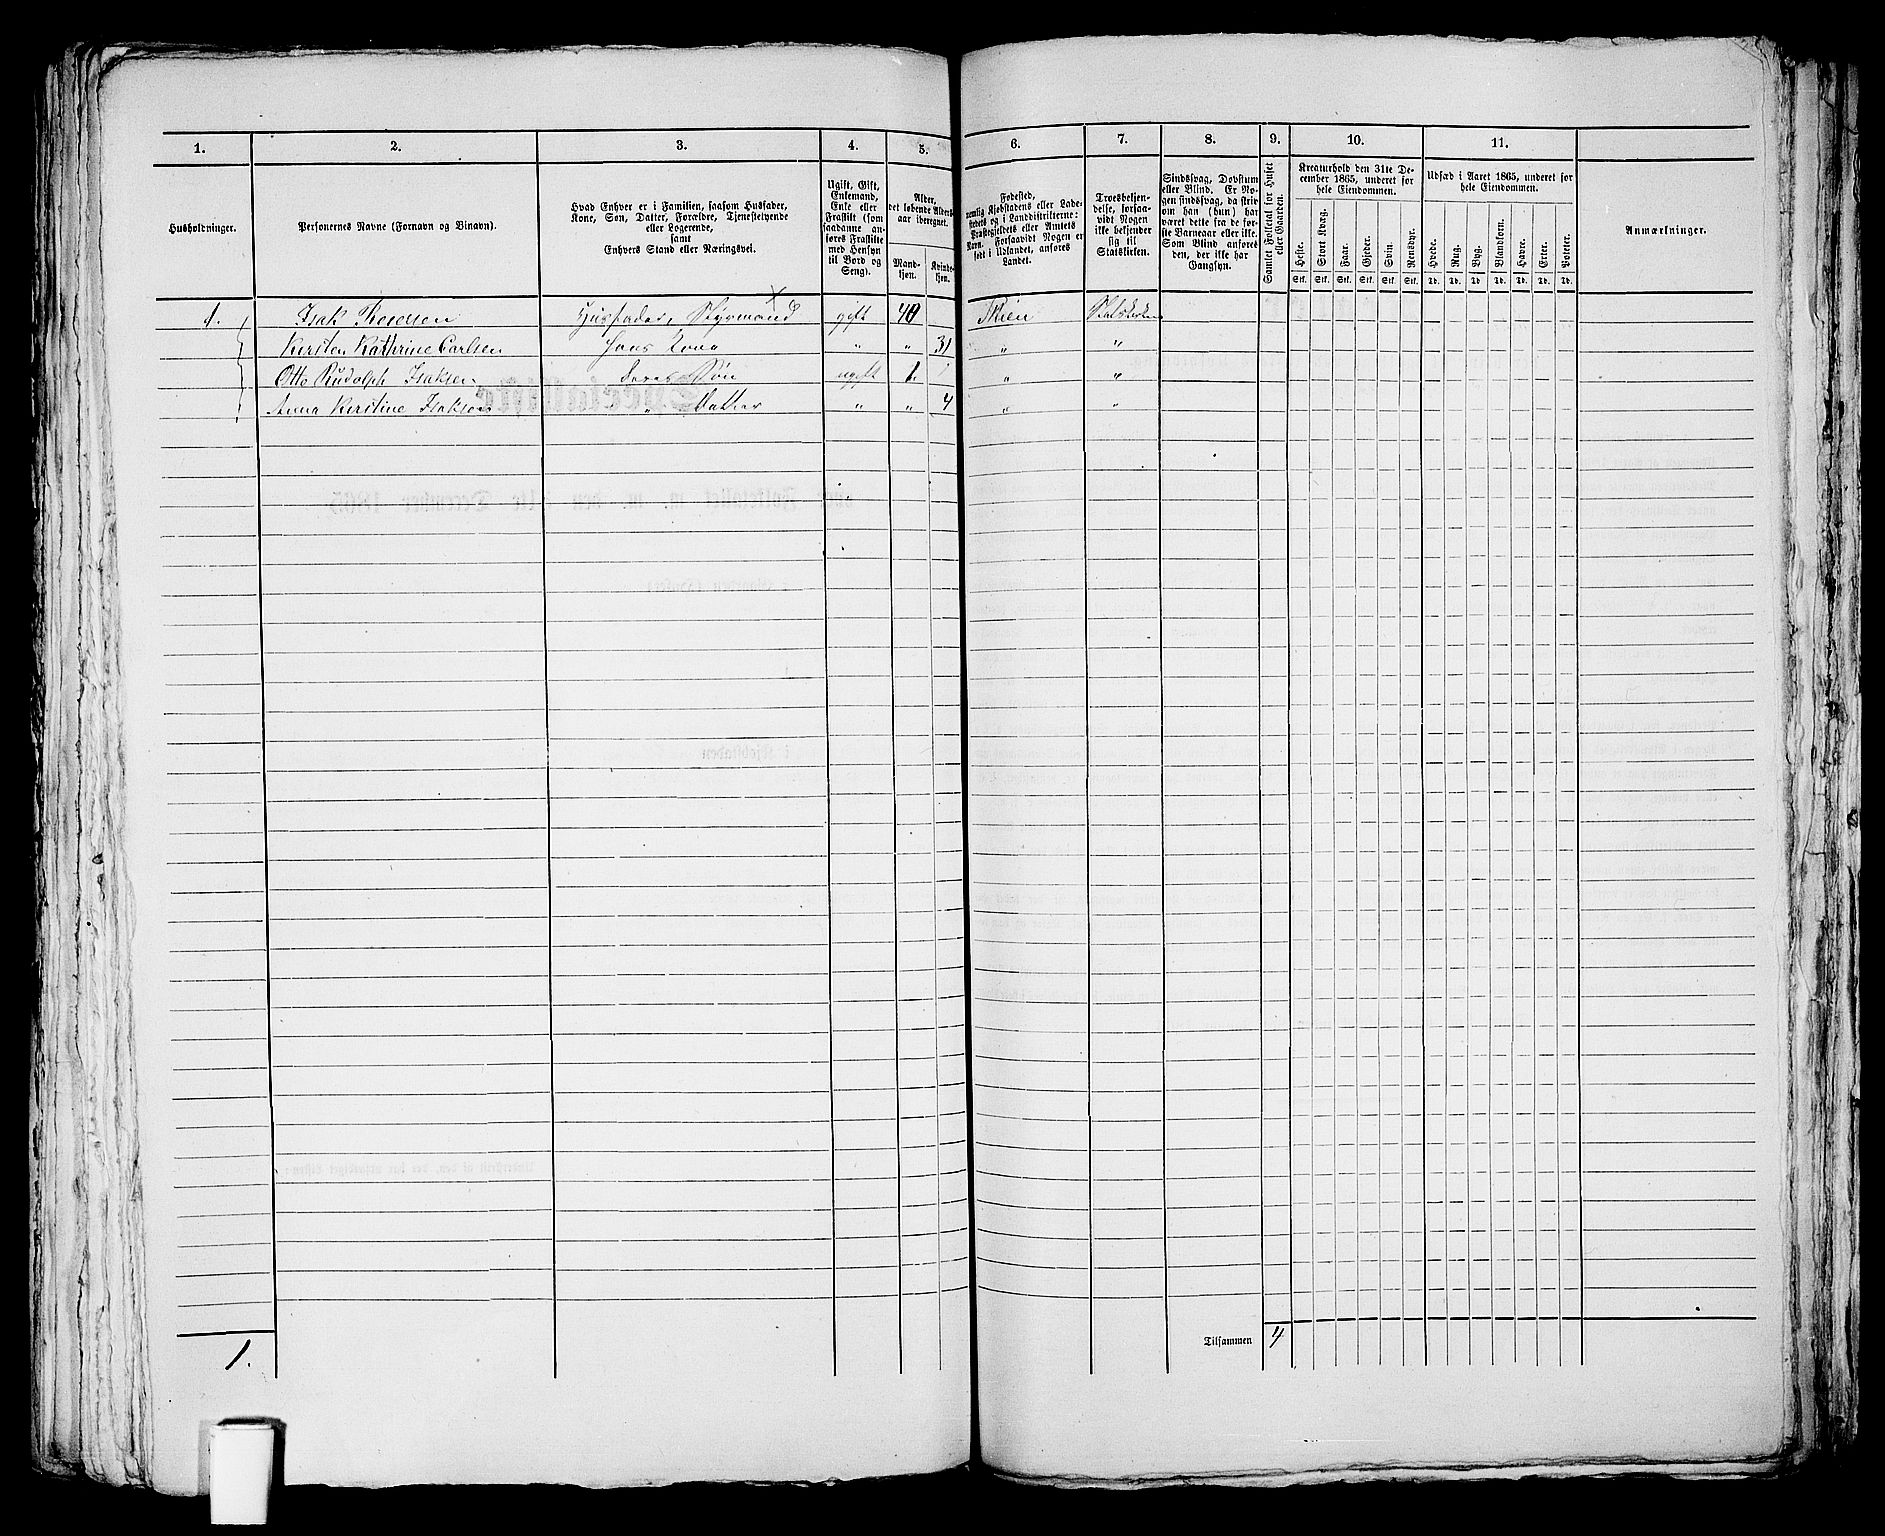 1. 2. 3. 4. 5. 6. 7. 8. 9. 10. 11.
Husholdninger.
Personernes Navne (Fornavn og Binavn).
Hvad Enhver er i Familien, saasom Husfader,
Kone, Søn, Datter, Forældre, Tjenestetyende
eller Logerende,
samt
Enhvers Stand eller Næringsvei.
Ugift, Gift,
Enkemand,
Enke eller
Fraskilt (som
saadanne an-
føres Fraskilte
med Hensyn
til Bord og
Seng).
Alder,
det løbende Alders-
aar iberegnet.
Mand-
kjøn.
Kvinde-
kjøn.
Fødested,
nemlig Kjøbstadens eller Lade-
stedets og i Landdistrikterne:
Præstegjeldets eller Amtets
Navn. Forsaavidt Nogen er
født i Udlandet, anføres
Landet.
Troesbekjen-
delse, forsaa-
vidt Nogen
ikke bekjender
sig til
Statskirken.
Sindssvag, Døvstum
eller Blind. Er No-
gen sindssvag, da skriv
om han (hun) har
været dette fra de før-
ste Barneaar eller ikke.
Som Blind anføres
den, der ikke har
Gangsyn.
Samlet Folketal for Huset
eller Gaarden.
Kreaturhold den 31te De-
cember 1865, underet for
hele Eiendommen.
Heste. Stort Kvæg. Faar. Gjeder. Svin. Rensdyr.
Stk. Stk. Stk. Stk. Stk. Stk.
Udsæd i Aaret 1865, underet for
hele Eiendommen.
Hvede. Rug. Byg. Blandkorn. Havre. Erter. Poteter.
Td. Td. Td. Td. Td. Td. Td.
Anmærkninger.
1. Isak Husfader, Styrmand gift 40 Skien Statskirken
Kirsten Kathrine Carlsen Hans Kone " " 31 " "
Otto Rudolph Isaksen deres Søn ugift 1. " "
Anna Kirstine Isaksen " Datter " " 4 " "
Tilsammen 4
1.